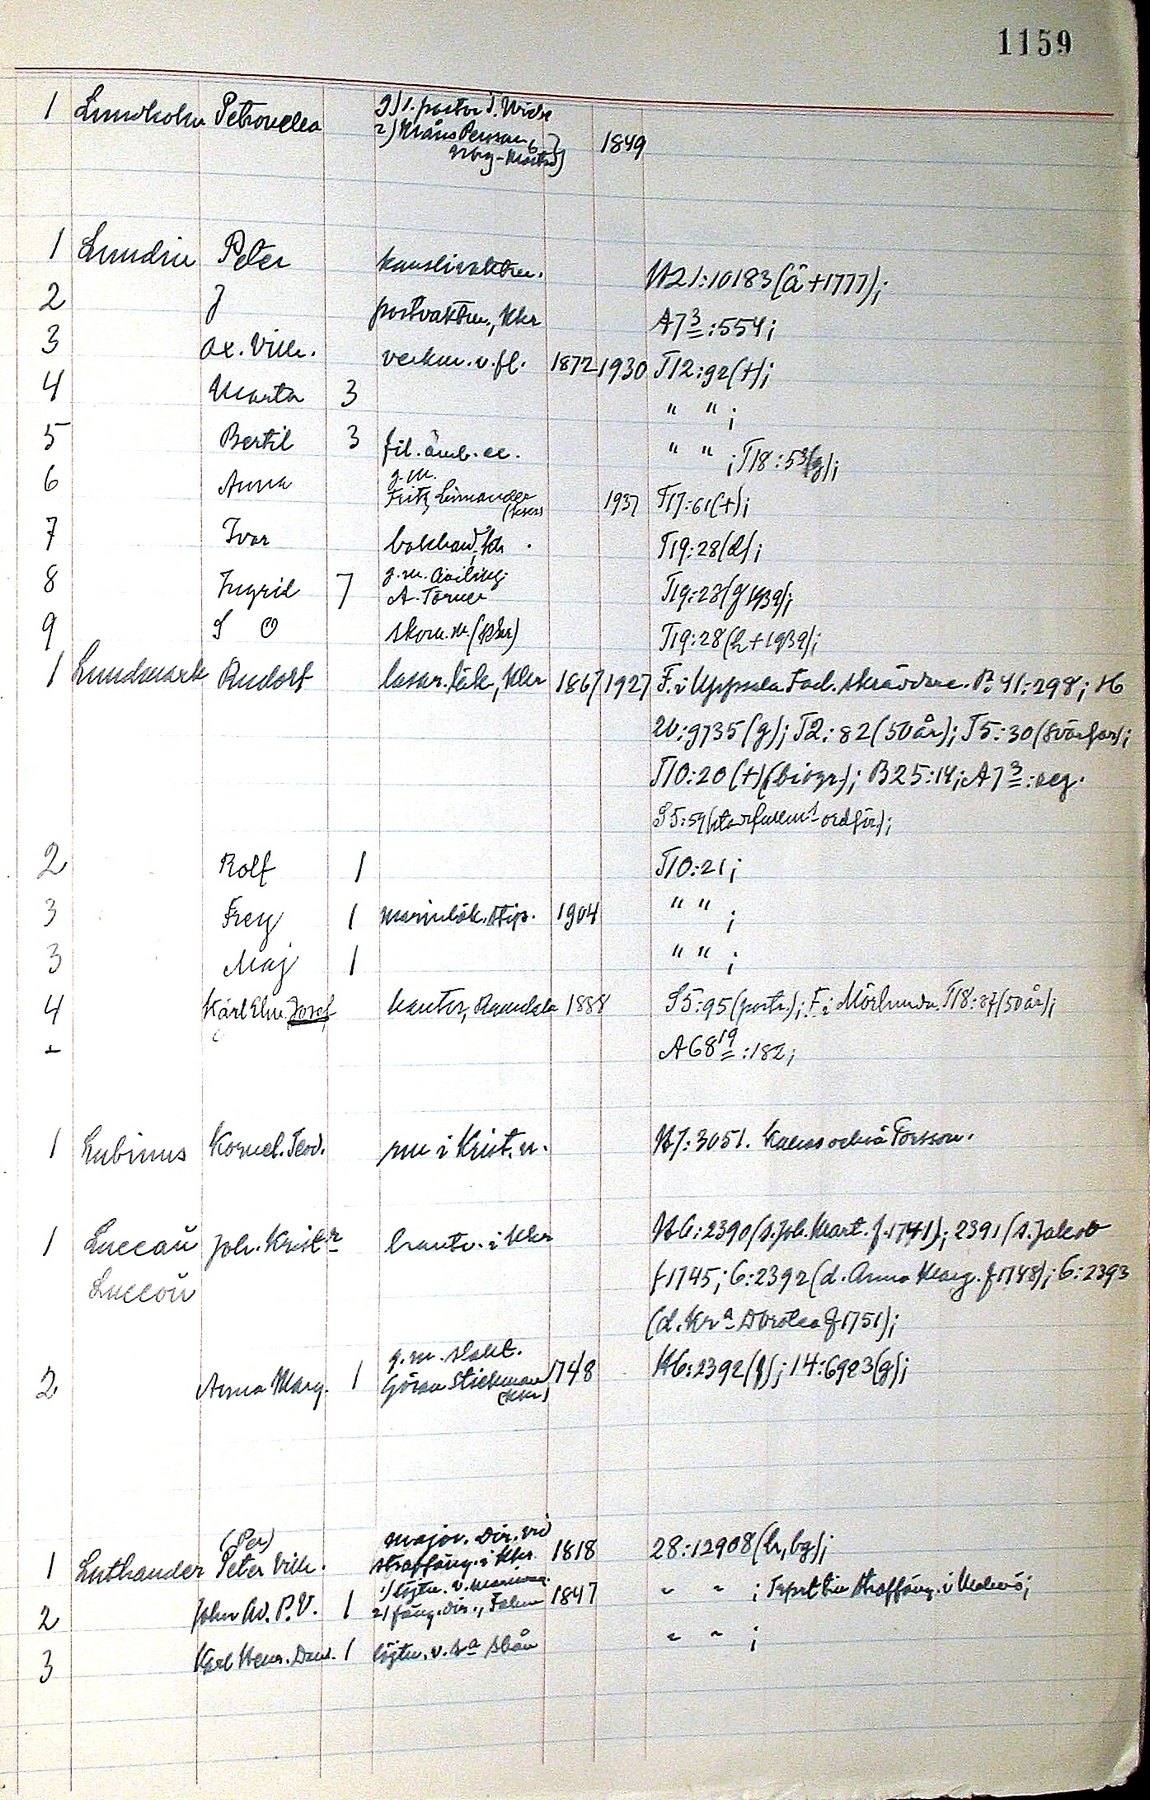 1159
1 Lundholm Petronella g) 1. pastor J. Wide
2) Måns Persson,
Nbg-Mörtsö 1849
1 Lundin Peter kanslivaktm. N21:10183(å+1777);
2 J postvaktm., Kkr A7 3:554;
3 Ax. Vilh. verkm. v. fl. 1872 1930 T12:92(+);
4 Marta 3 " " ;
5 Bertil 3 fil. ämb. ex. " " ; T18:53(g);
6 Anna g. m.
Fritz Limander
(Kkr) 1937 T17:61(+);
7 Ivar bokhand, Kkr . T19:28(d);
8 Ingrid 7 g. m. civiling.
A. Törner T19:28(g 1939);
9 S O skom. m (Kkr) T19:28(h+1939);
1 Lundmark Rudolf lasar. läk, Kkr 1867 1927 F. i Uppsala. Fad. skräddare. B. 41:298; H
20:9735(g); T2:82(50 år); T5:30(svärfar);
T10:20(+)(biogr); B25:14; A7 3: reg.
S5:59(stadsfullm. ordför);
2 Rolf 1 T10:21;
3 Frey 1 marinläk. stip. 1904 " " ;
3 Maj 1 " " ;
4 Karl Elm. Josef kantor, 1888 S5:95(portr.); F. i Mörlunda. T18:87(50 år);
A68 19:182;
1 Lubinus Kornel. Teod. rm i Krist. n. N7:3051. Kallas också Torsson.
1 Luccaü Joh. Kristn hantv. i Kkr N6:2390(s. Joh. Mart. f. 1741); 2391(s. Jakob
Luccoü f 1745; 6:2392(d. Anna Marg. f 1748); 6:2393
(d. Kra Dorotea f 1751);
2 Anna Marg. 1 g. m. slakt.
Göran Stickman
(Kkr) 1748 N6:2392(f); 14:6923(g);
(Per) major. Dir. vid
1 Luthander Peter Vilh. straffäng. i Kkr 1818 28:12908(h, bg);
2 John Ad. P. V. 1 1) löjtn. v. marinreg.
2) fäng. dir., Falun 1847 " " ; straffäng. i Malmö;
3 Karl Henr. Dan. 1 löjtn. v. sa skån " " ;